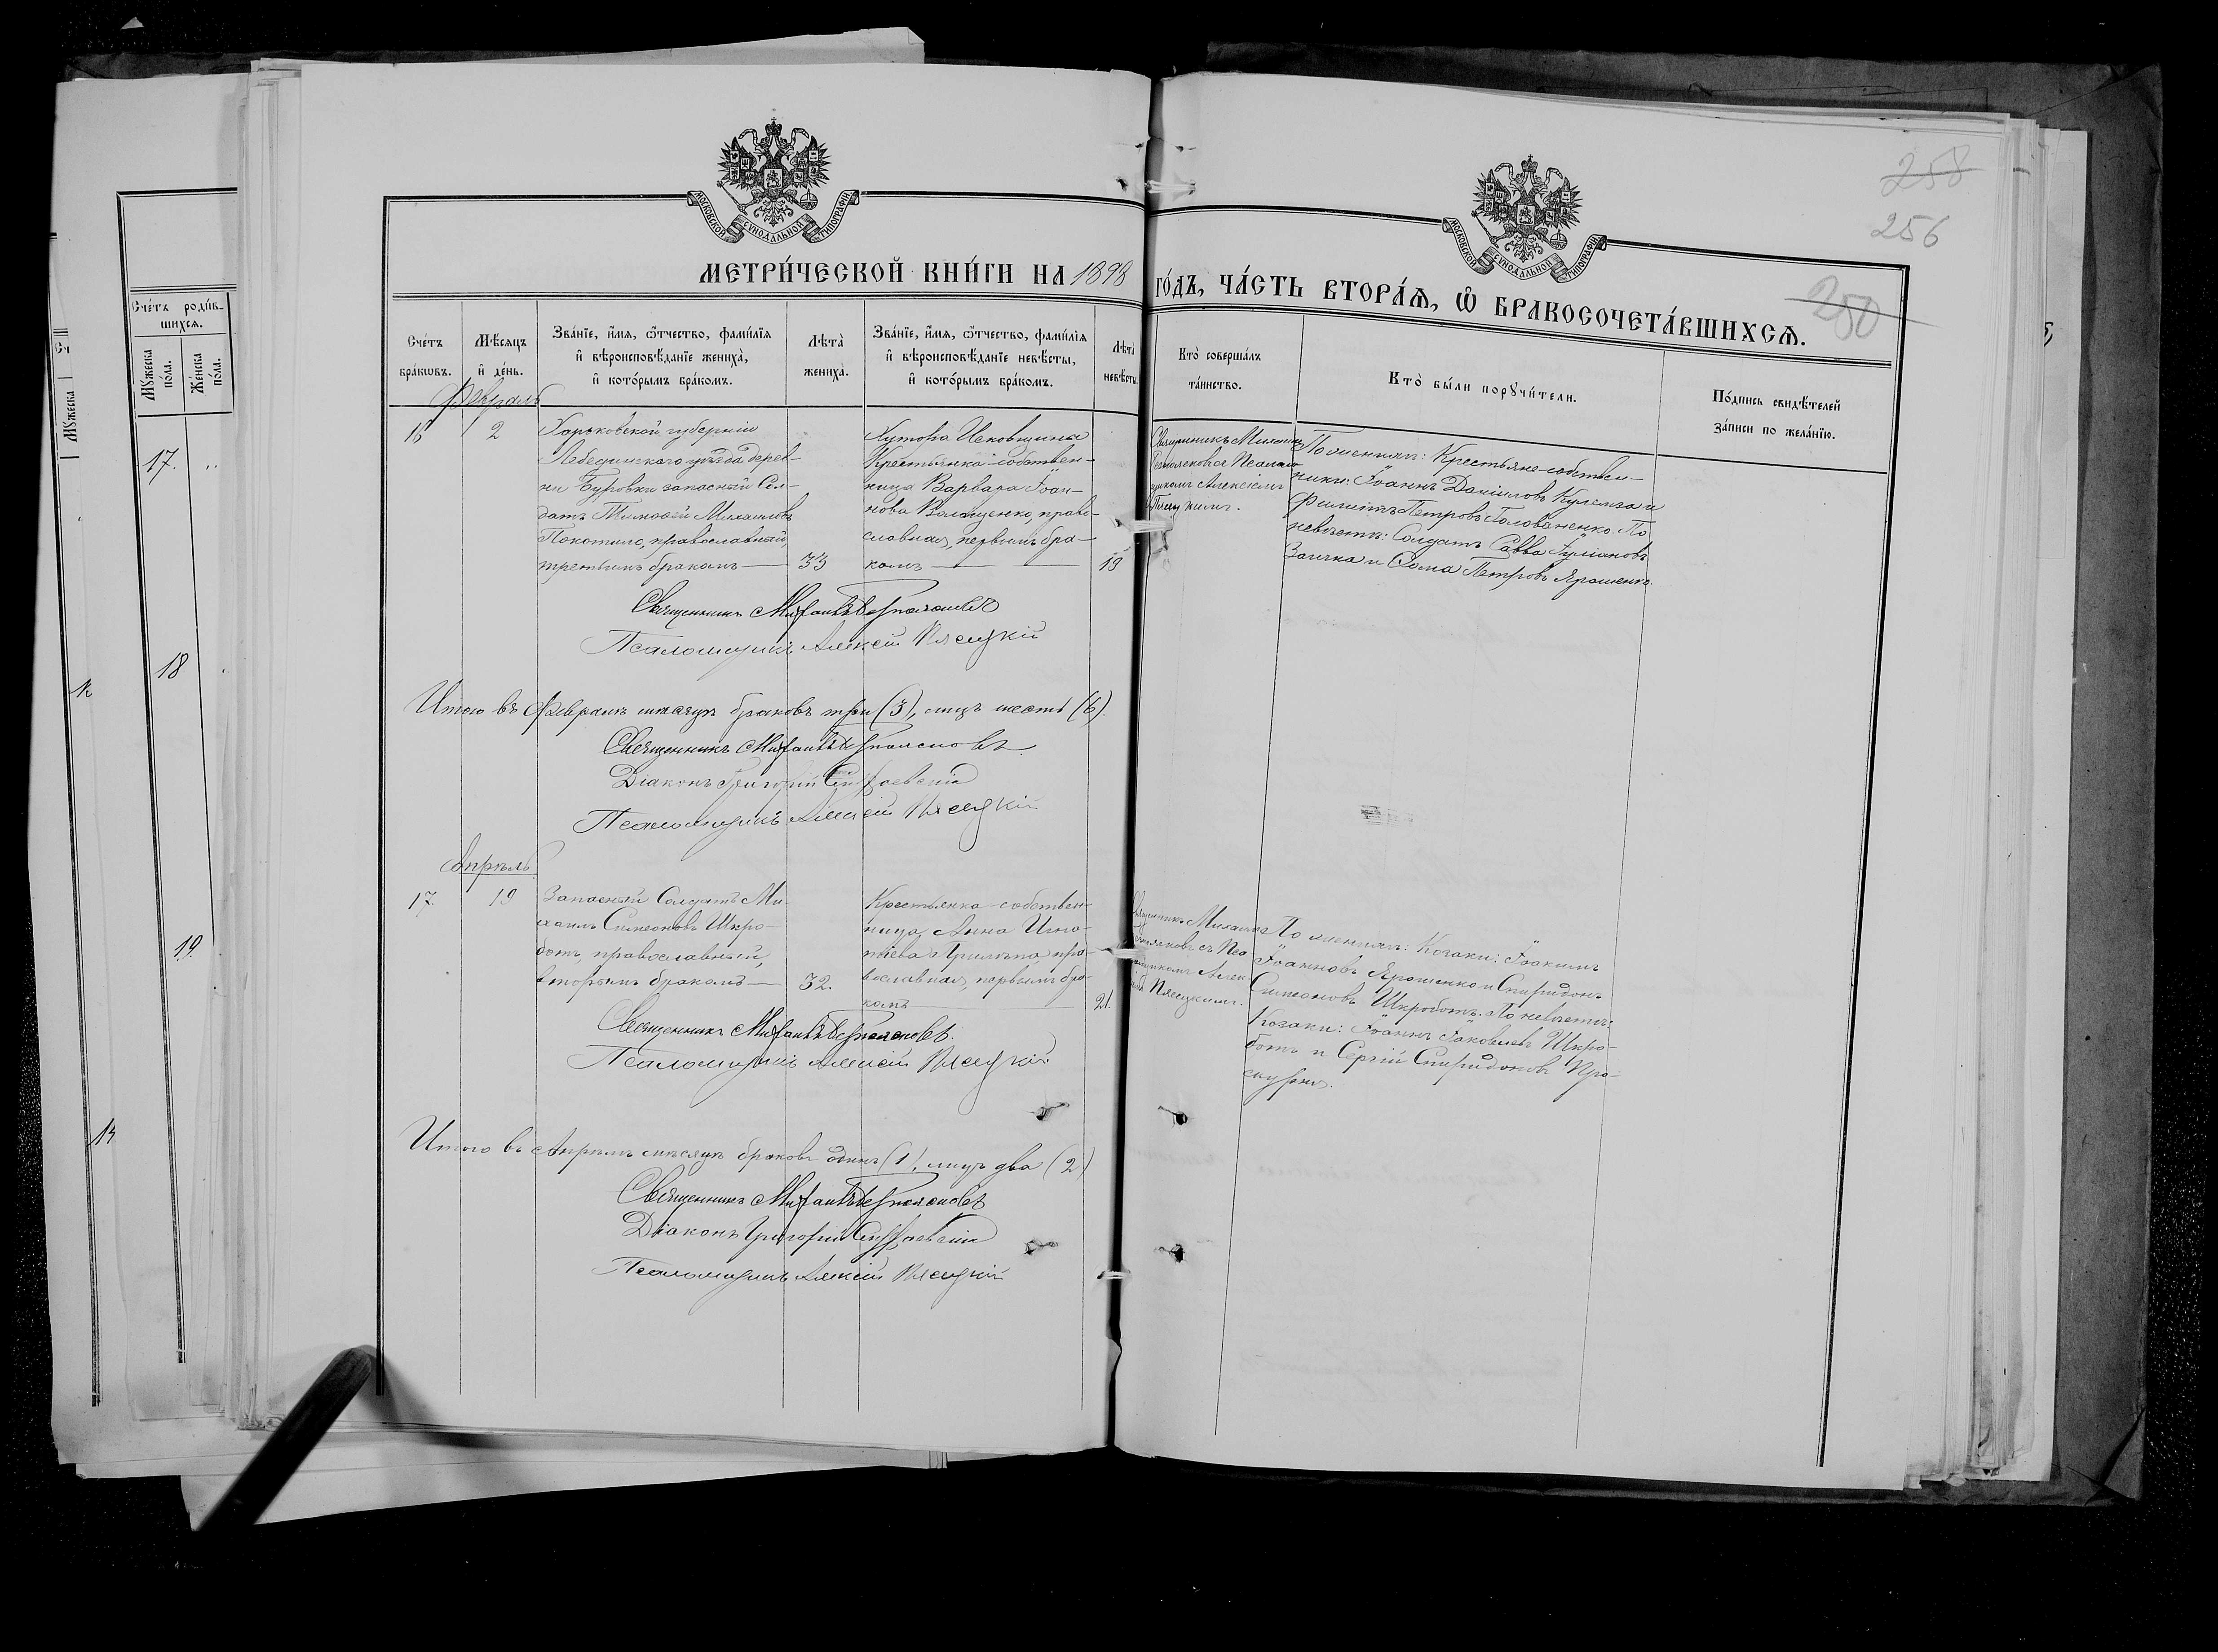 МОСКОВСКОЙ СѴНОДАЛЬНОЙ ТИПОГРАФІИ
МОСКОВСКОЙ СѴНОДАЛЬНОЙ ТИПОГРАФІИ
258
256
250
МЕТРИ́ЧЕСКОЙ КНИ́ГИ НА 1898
ГО́ДЪ, ЧА́СТЬ ВТОРА́Ѧ, Ѽ БРАКОСОЧЕТА́ВШИХСѦ.
Сче́тъ роди́в-
шихсѧ.
Мꙋ́жеска
по́ла.
Же́нска
по́ла.
17.
18
19.
14
Сче́тъ
бра́кѡвъ.
Мѣ́сѧцъ
и҆ де́нь.
Зва́нїе, и҆́мѧ, ѻ҆́тчество, фами́лїѧ
и҆ вѣроисповѣ́данїе жениха̀,
и҆ кото́рымъ бра́комъ.
Лѣта̀
жениха̀.
Зва́нїе, и҆́мѧ, ѻ҆́тчество, фами́лїѧ
и҆ вѣроисповѣ́данїе невѣ́сты,
и҆ кото́рымъ бра́комъ.
Лѣта̀
невѣ́сты.
Кто̀ соверша́лъ
та́инство.
Кто̀ бы́ли порꙋчи́тели.
По́дпись свидѣ́телей
за́писи по жела́нїю.
Февраль
16
2
Харьковской губерніи
Лебединскаго уѣзда дерев-
ни Буровки запасный Сол-
датъ Тимоѳей Михаиловъ
Покотило, православный,
третьимъ бракомъ
33
Хутора Исковщины
Крестьянка-собствен-
ница Варвара Іоан-
нова Волощенко, право-
славная, первымъ бра-
комъ
19
Священникъ Михаилъ
Псалом-
щикомъ Алексіемъ
По женихѣ: Крестьяне-собствен-
ники: Іоаннъ Даніиловъ Кулемза и
Филиппъ Петровъ Голованенко. По
невѣстѣ: Солдатъ Савва Іуліановъ
Заичка и Ѳома Петровъ Ярошенко.
Священникъ Михаилъ
Псаломщикъ Алексій Плесцкій
Итого въ Февралѣ мѣсяцѣ браковъ три (3), лицъ шесть (6).
Священникъ Михаилъ
Діаконъ Григорій
Псаломщикъ Алексій Плесцкій
Апрѣль
17.
19
Запасный Солдатъ Ми-
хаилъ Симеоновъ Шкро-
ботъ, православный,
вторымъ бракомъ
32.
Крестьянка-собствен-
ница Анна Игна-
тіева пра-
вославная, первымъ бра-
комъ
21.
Священникъ Михаилъ
съ Пса-
ломщикомъ Алек-
Плесцкимъ.
По женихѣ: Козаки: Іоакимъ
Іоанновъ Ярошенко и Спиридонъ
Симеоновъ Шкроботъ. По невѣстѣ:
Козаки: Іоаннъ Іаковлевъ Шкро-
ботъ и Сергій Спиридоновъ Про-
скурня.
Священникъ Михаилъ
Псаломщикъ Алексій Плесцкій
Итого въ Апрѣлѣ мѣсяцѣ браковъ одинъ (1), лицъ два (2)
Священникъ Михаилъ
Діаконъ Григорій
Псаломщикъ Алексій Плесцкій